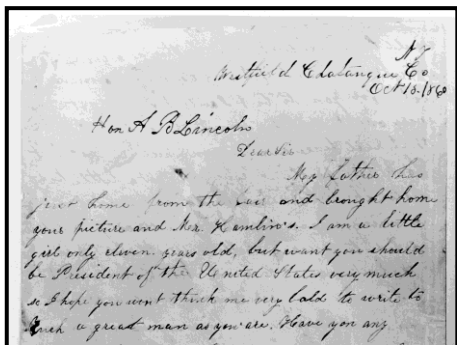 N Y
Westfield Chatauque Co
Oct 15. 1860
Hon A B Lincoln
Dear Sir
My father has
just home from the fair and brought home
your picture and Mr. Hamlin's. I am a little
girl only eleven years old, but want you should
be President of the United States very much
so I hope you wont think me very bold to write to
such a great man as you are. Have you any